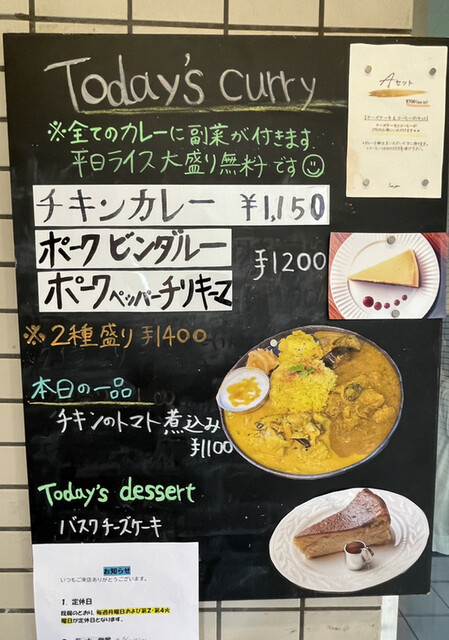 Today's curry
※全てのカレーに副菜が付きます
平日ライス大盛り無料です
チキンカレー ¥1,150
ポークビンダルー
¥1200
ポークペッパーチリキーマ
※2種盛り ¥1400
本日の一品
チキンのトマト煮込み
¥1100
Today's dessert
バスクチーズケーキ
Aセット
お知らせ
いつもご来店ありがとうございます。
1. 定休日
毎週月曜日および第2・第4火
曜日が定休日となります。